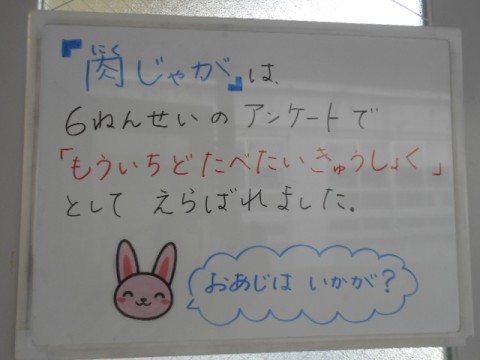 『肉じゃが』は、
にく
6ねんせいの アンケートで
「もういちど たべたい きゅうしょく」
として えらばれました。
おあじは いかが？